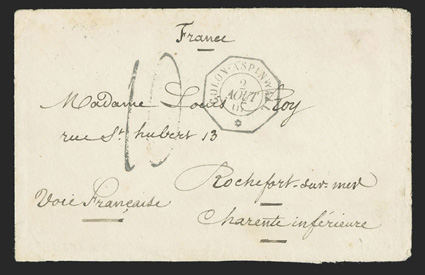 France
10
COLON-ASPINWALL
2
AOUT
Madame Louis Roy
rue St hubert 13
Rochefort-sur-mer
Voie Française
Charente inférieure